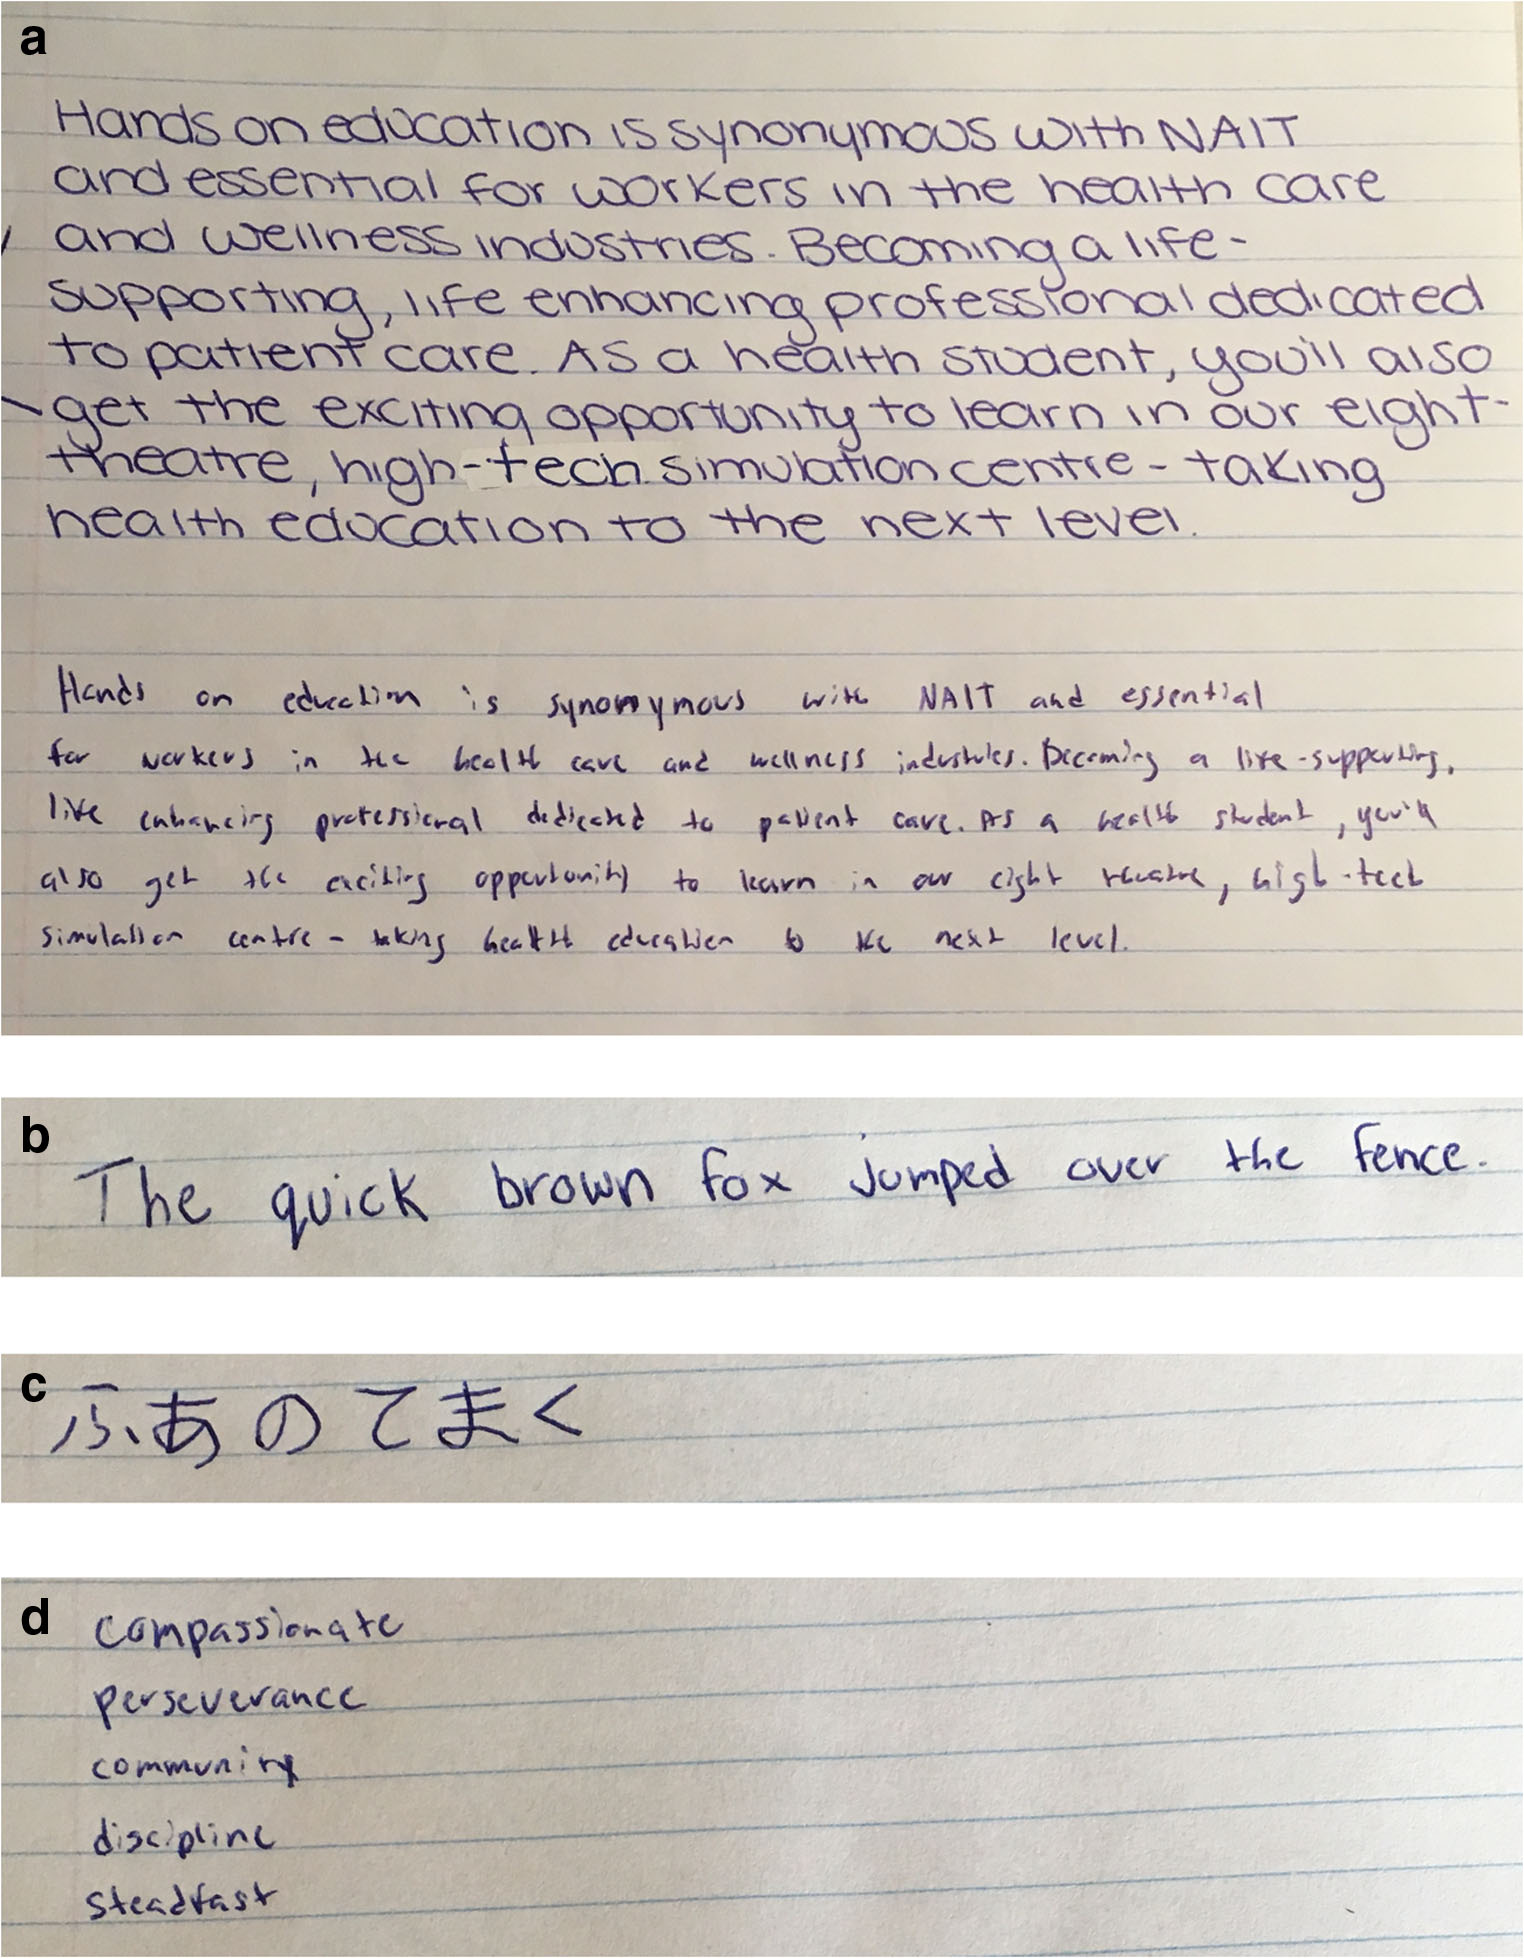 a
Hands on education is synonymous with NAIT
and essential for workers in the health care
and wellness industries. Becoming a life-
supporting, life enhancing professional dedicated
to patient care. As a health student, you'll also
get the exciting opportunity to learn in our eight-
theatre, high-tech simulation centre - taking
health education to the next level.
Hands on education is synonymous with NAIT and essential
for workers in the health care and wellness industries. Becoming a life-supporting,
life enhancing professional dedicated to patient care. As a health student, you'll
also get the exciting opportunity to learn in our eight theatre, high-tech
simulation centre - taking health education to the next level.
b
The quick brown fox jumped over the fence.
c
ふあのてまく
d
compassionate
perseverance
community
discipline
steadfast